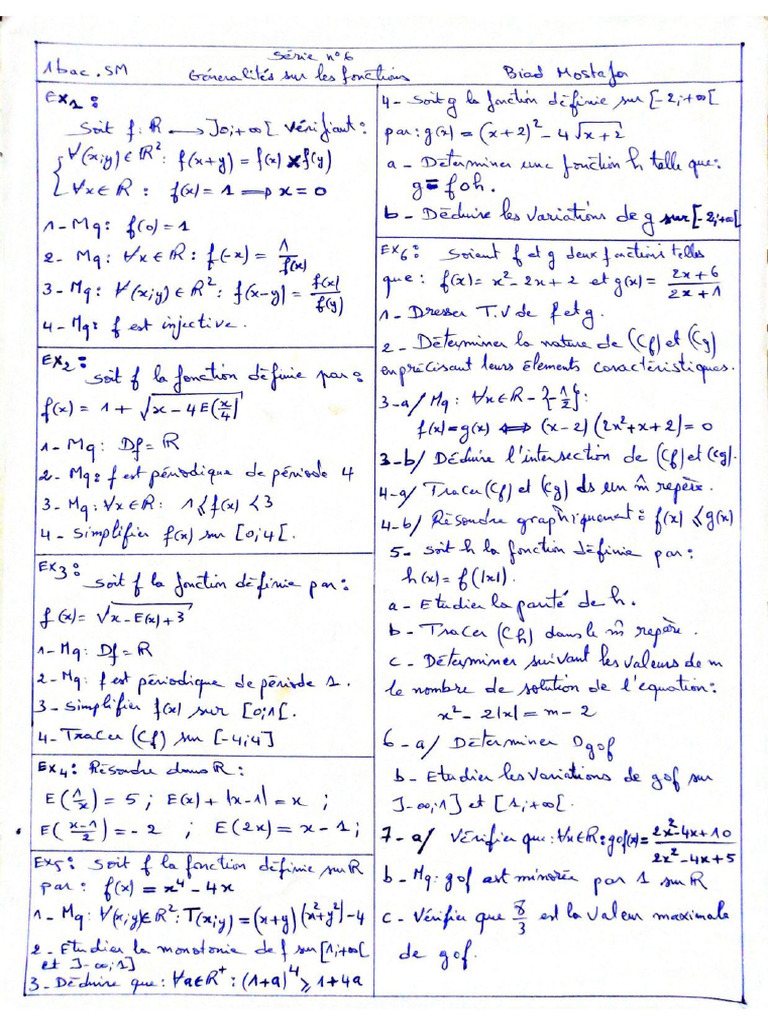 Série n°6
1bac.SM Géneralités sur les fonctions Biad Mostafa
Ex1:
Soit f: ℝ → ]0;+∞[ vérifiant:
{ ∀(x;y)∈ℝ²: f(x+y) = f(x) × f(y)
{ ∀x∈ℝ : f(x) = 1 ⟹ x = 0
1- Mq: f(0) = 1
2- Mq: ∀x∈ℝ: f(-x) = 1/f(x)
3- Mq: ∀(x;y)∈ℝ²: f(x-y) = f(x)/f(y)
4- Mq: f est injective.
Ex2:
Soit f la fonction définie par:
f(x) = 1 + √(x - 4E(x/4))
1- Mq: Df = ℝ
2- Mq: f est périodique de période 4
3- Mq: ∀x∈ℝ: 1 ≤ f(x) < 3
4- Simplifier f(x) sur [0;4[.
Ex3:
Soit f la fonction définie par:
f(x) = √(x - E(x) + 3)
1- Mq: Df = ℝ
2- Mq: f est périodique de période 1.
3- Simplifier f(x) sur [0;1[.
4- Tracer (Cf) sur [-4;4]
Ex4: Résoudre dans ℝ:
E(1/x) = 5 ; E(x) + |x-1| = x ;
E((x-1)/2) = -2 ; E(2x) = x - 1 ;
Ex5: Soit f la fonction définie sur ℝ
par: f(x) = x⁴ - 4x
1- Mq: ∀(x;y)∈ℝ²: T(x;y) = (x+y)(x²+y²) - 4
2- Etudier la monotonie de f sur [1;+∞[
et ]-∞;1]
3- Déduire que: ∀a∈ℝ⁺: (1+a)⁴ ≥ 1+4a
4- Soit g la fonction définie sur [-2;+∞[
par: g(x) = (x+2)² - 4√(x+2)
a- Déterminer une fonction h telle que:
g = foh.
b- Déduire les variations de g sur [-2;+∞[
Ex6: Soient f et g deux fonctions telles
que: f(x) = x² - 2x + 2 et g(x) = (2x+6)/(2x+1)
1- Dresser T.V de f et g.
2- Déterminer la nature de (Cf) et (Cg)
en précisant leurs élements caractéristiques.
3-a/ Mq: ∀x∈ℝ - {-1/2}:
f(x) = g(x) ⟺ (x-2)(2x²+x+2) = 0
3-b/ Déduire l'intersection de (Cf) et (Cg).
4-a/ Tracer (Cf) et (Cg) ds un m̂ repère.
4-b/ Résoudre graphiquement: f(x) ≤ g(x)
5- Soit h la fonction définie par:
h(x) = f(|x|).
a- Etudier la parité de h.
b- Tracer (Ch) dans le m̂ repère.
c- Déterminer suivant les valeurs de m
le nombre de solution de l'equation:
x² - 2|x| = m - 2
6-a/ Déterminer Dgof
b- Etudier les variations de gof sur
]-∞;1] et [1;+∞[.
7-a/ Vérifier que: ∀x∈ℝ: gof(x) = (2x²-4x+10)/(2x²-4x+5)
b- Mq: gof est minorée par 1 sur ℝ
c- Vérifier que 8/3 est la valeur maximale
de gof.